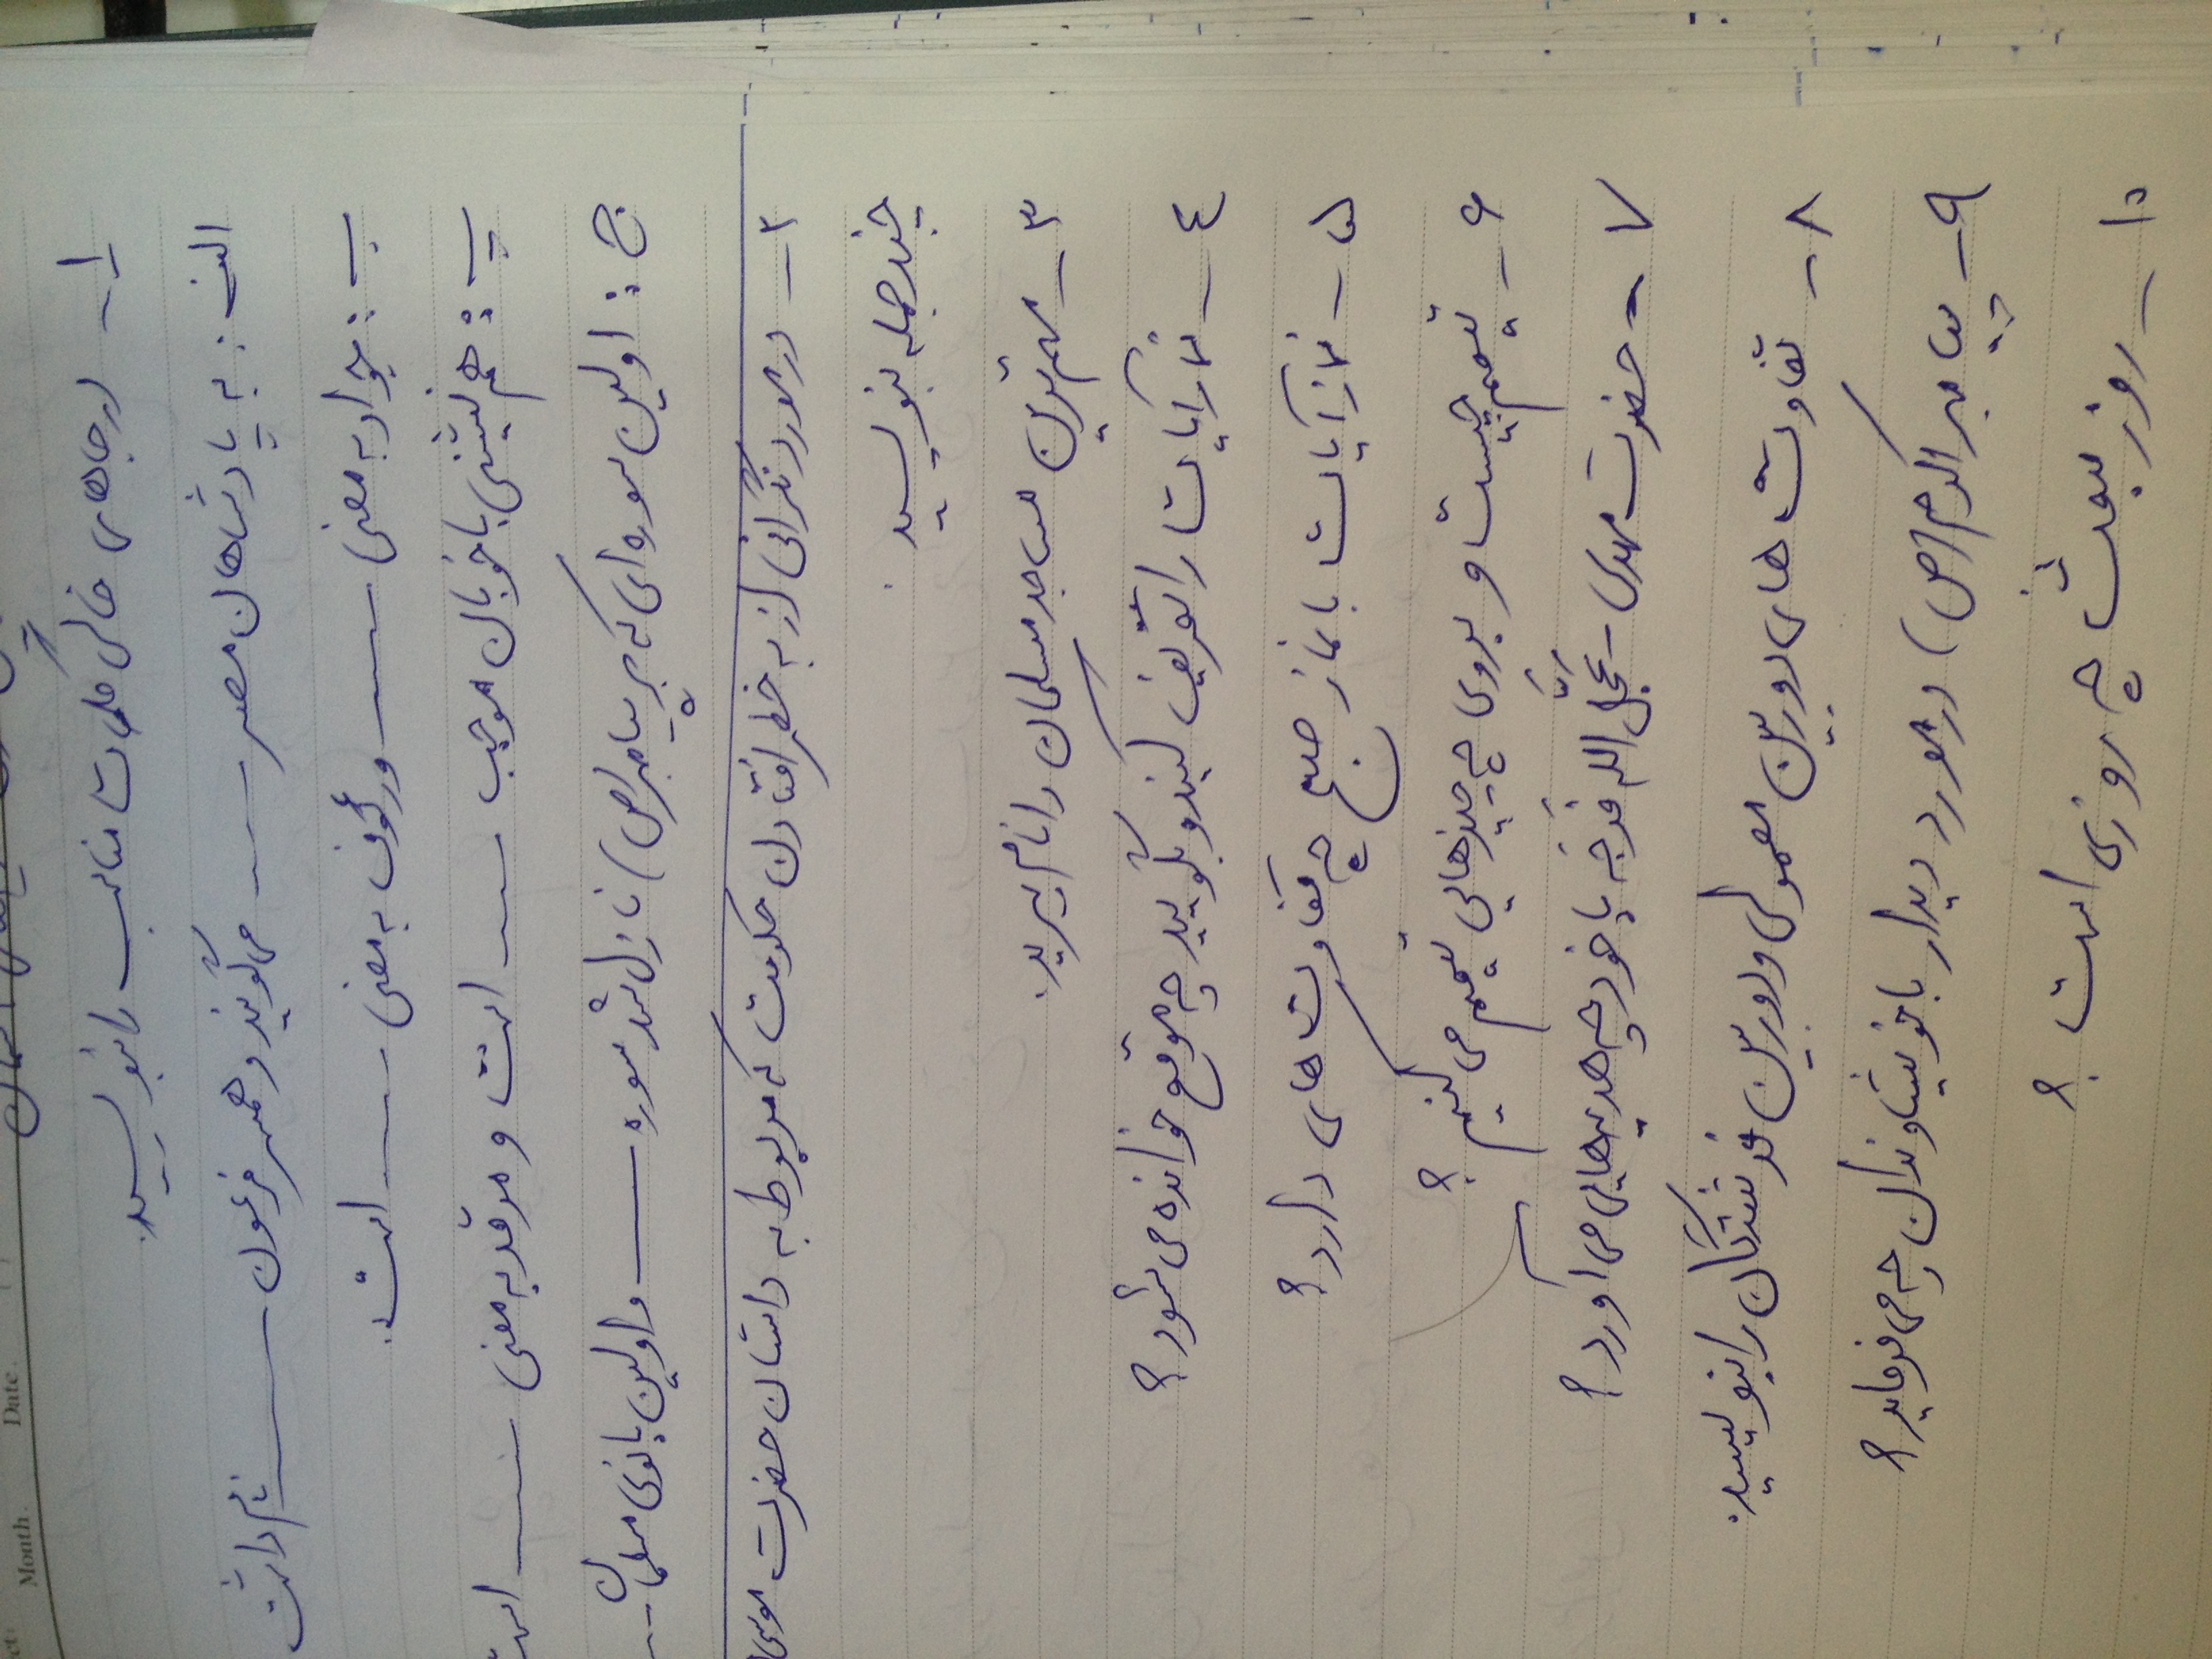 Month. Date.
۱- در جاهای خالی کلمات مناسب را بنویسید.
الف: به پادشاهان مصر ـــــ می‌گویند و همسر فرعون ـــــ نام داشت
ب: جواد به معنی ـــــ و رئوف به معنی ـــــ است.
پ: هم‌نشینی با خوبان موجب ـــــ است و مرقد به معنی ـــــ است
ج: اولین سوره‌ای که بر پیامبر (ص) نازل شد سوره ـــــ و اولین بانوی مسلمان ـــ
۲- در مورد نگرانی از به خطر افتادن حکومت که مربوط به داستان حضرت موسی
چند جمله بنویسید.
۳- مهم‌ترین مساجد مسلمان را نام ببرید.
٤- نماز آیات را تعریف کنید و بگویید چه موقع خوانده می‌شود؟
۵- نماز آیات با نماز صبح چه تفاوت‌های دارد؟
۶- تیمم چیست و بروی چه چیزهایی تیمم می‌کنیم؟
۷- حضرت مهدی - عَجَّلَ الله فَرَجَه با خود چه هدیه‌هایی می‌آورد؟
۸- تفاوت‌های دوربین معمولی و دوربین فرشتگان را بنویسید.
۹- پیامبر اکرم (ص) در مورد دیدار با خویشاوندان چه می‌فرماید؟
۱۰- روز مبعث چه روزی است؟